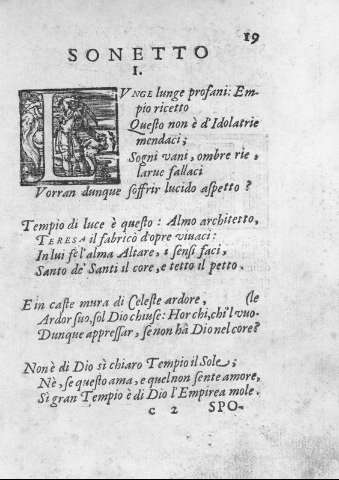 19
SONETTO
I.
LVNGE lunge profani: Em-
pio ricetto
Questo non è d'Idolatrie
mendaci;
Sogni vani, ombre rie,
larue fallaci
Vorran dunque soffrir lucido aspetto?
Tempio di luce è questo: Almo architetto,
TERESA il fabricò d'opre viuaci:
In lui fè l'alma Altare, i sensi faci,
Santo de' Santi il core, e tetto il petto.
E in caste mura di Celeste ardore, (le
Ardor suo, sol Dio chiuse: Hor chi, chi'l vuo-
Dunque appressar, se non hà Dio nel core?
Non è di Dio sì chiaro Tempio il Sole;
Nè, se questo ama, e quel non sente amore,
Sì gran Tempio è di Dio l'Empirea mole.
C 2 SPO-